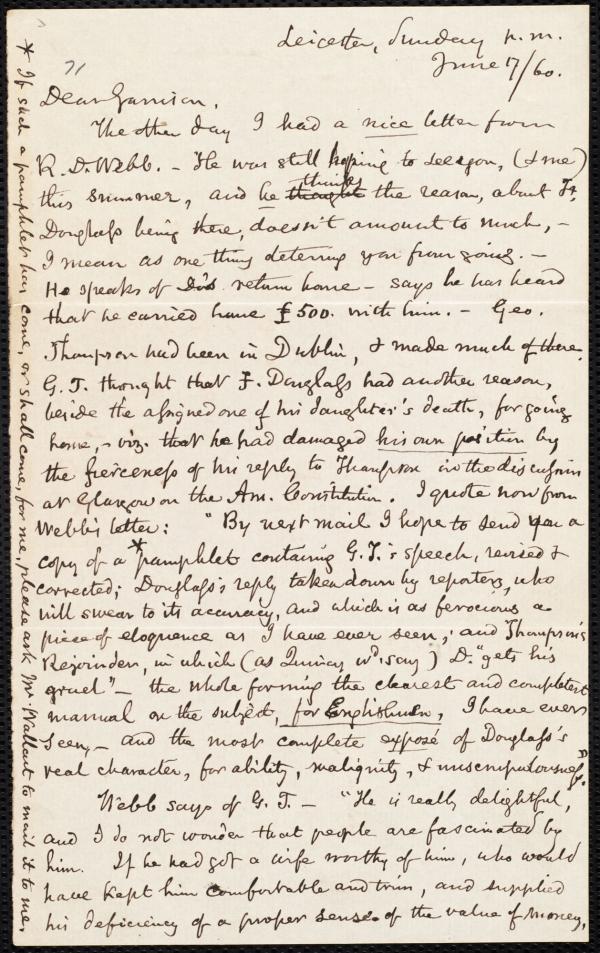 Leicester, Sunday p.m.
June 17/60.
71
Dear Garrison,
The other day I had a nice letter from
R. D. Webb. - He was still hoping to see you, (& me)
this summer, and he thought thinks the reason, about Fr.
Douglass being there, doesn't amount to much, -
I mean as one thing deterring you from going. -
He speaks of D's return home - says he has heard
that he carried home £500. with him. - Geo.
Thompson had been in Dublin, & made much of there.
G. T. thought that F. Douglass had another reason,
beside the assigned one of his daughter's death, for going
home, - viz. that he had damaged his own position by
the fierceness of his reply to Thompson in the discussion
at Glasgow on the Am. Constitution. I quote now from
Webb's letter: "By next mail I hope to send you a
copy of a *pamphlet containing G. T.'s speech, revised &
corrected; Douglass's reply taken down by reporters, who
will swear to its accuracy, and which is as ferocious a
piece of eloquence as I have ever seen; and Thompson's
Rejoinder, in which (as Quincy wd. say) D. "gets his
gruel" - the whole forming the clearest and completest
manual on the subject, for Englishmen, I have ever
seen, - and the most complete exposé of Douglass's
real character, for ability, malignity, & unscrupulousness."
Webb says of G. T. - "He is really delightful,
and I do not wonder that people are fascinated by
him. If he had got a wife worthy of him, who would
have kept him comfortable and trim, and supplied
his deficiency of a proper sense of the value of money,
* If such a pamphlet has come, or shall come, for me, please ask Mr. Wallcut to mail it to me.